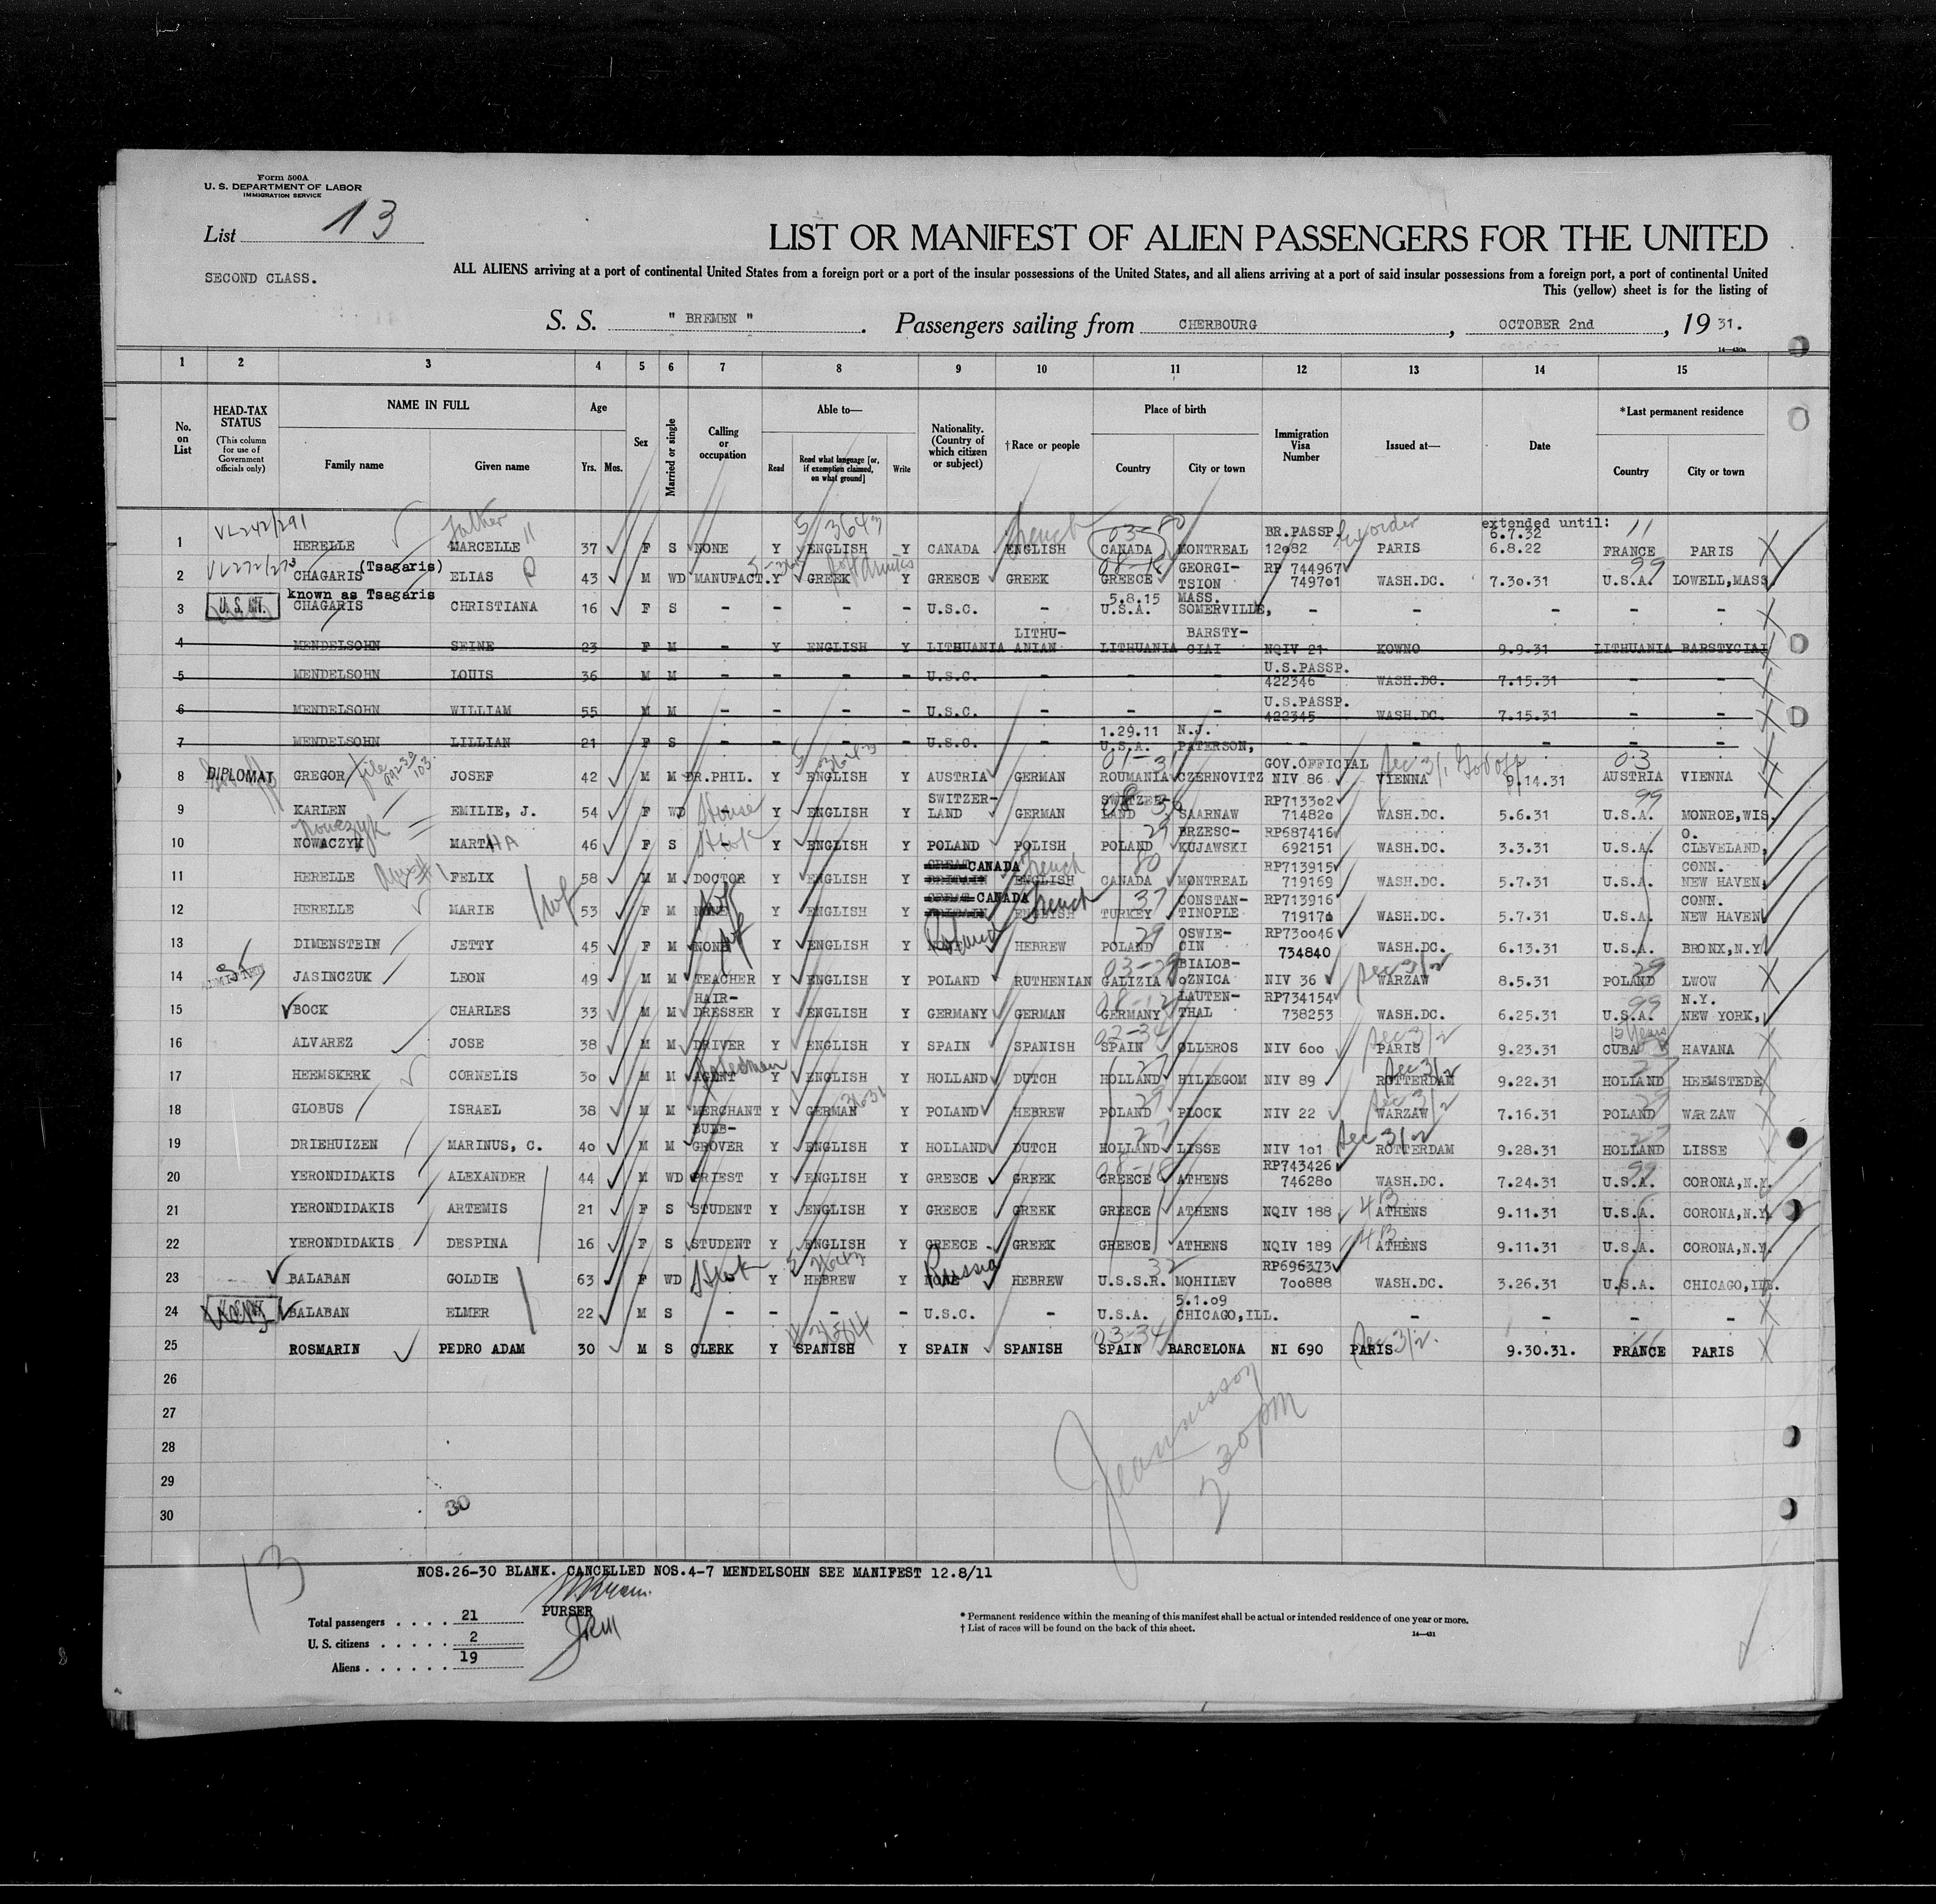 Form 500A
U. S. DEPARTMENT OF LABOR
IMMIGRATION SERVICE
List 13
LIST OR MANIFEST OF ALIEN PASSENGERS FOR THE UNITED
SECOND CLASS.
ALL ALIENS arriving at a port of continental United States from a foreign port or a port of the insular possessions of the United States, and all aliens arriving at a port of said insular possessions from a foreign port, a port of continental United
This (yellow) sheet is for the listing of
S. S. " BREMEN " . Passengers sailing from CHERBOURG , OCTOBER 2nd , 19 31.
14—430a
1 2 3 4 5 6 7 8 9 10 11 12 13 14 15
No. on List
HEAD-TAX STATUS (This column for use of Government officials only)
NAME IN FULL Family name Given name
Age Yrs. Mos.
Sex
Married or single
Calling or occupation
Able to— Read Read what language [or, if exemption claimed, on what ground] Write
Nationality. (Country of which citizen or subject)
†Race or people
Place of birth Country City or town
Immigration Visa Number
Issued at—
Date
*Last permanent residence Country City or town
VL242/291 father 5 3643 French 03-80 BR.PASSP. extended until: 6.7.32 11
1 HERELLE MARCELLE 11 37 F S NONE Y ENGLISH Y CANADA ENGLISH CANADA MONTREAL 12082 PARIS 6.8.22 FRANCE PARIS
VL272/273 (Tsagaris) 08-18 GEORGI- RP 744967 99
2 CHAGARIS ELIAS 43 M WD MANUFACT. Y GREEK Y GREECE GREEK GREECE TSION 749701 WASH.DC. 7.30.31 U.S.A. LOWELL,MASS
known as Tsagaris 5.8.15 MASS.
3 U.S.CIT. CHAGARIS CHRISTIANA 16 F S - - - - U.S.C. - U.S.A. SOMERVILLE, - - - - -
LITHU- BARSTY-
4 MENDELSOHN SEINE 23 F M - Y ENGLISH Y LITHUANIA ANIAN LITHUANIA CIAI NQIV 21 KOWNO 9.9.31 LITHUANIA BARSTYCIAI
U.S.PASSP.
5 MENDELSOHN LOUIS 36 M M - - - - U.S.C. - - - 422346 WASH.DC. 7.15.31 - -
U.S.PASSP.
6 MENDELSOHN WILLIAM 55 M M - - - - U.S.C. - - - 422345 WASH.DC. 7.15.31 - -
1.29.11 N.J.
7 MENDELSOHN LILLIAN 21 F S - - - - U.S.C. - U.S.A. PATERSON, - - - - -
file 01-31 GOV.OFFICIAL Sec 3/1 Gov off 03
8 DIPLOMAT GREGOR JOSEF 42 M M DR.PHIL. Y ENGLISH Y AUSTRIA GERMAN ROUMANIA CZERNOVITZ NIV 86 VIENNA 9.14.31 AUSTRIA VIENNA
SWITZER- SWITZER- RP713302 99
9 KARLEN EMILIE, J. 54 F WD House Y ENGLISH Y LAND GERMAN LAND SAARNAW 714820 WASH.DC. 5.6.31 U.S.A. MONROE,WIS.
Nowczyk 29 BRZESC- RP687416 O.
10 NOWACZYK MARTHA 46 F S - Y ENGLISH Y POLAND POLISH POLAND KUJAWSKI 692151 WASH.DC. 3.3.31 U.S.A. CLEVELAND,
GREAT CANADA French 80 RP713915 CONN.
11 HERELLE FELIX 58 M M DOCTOR Y ENGLISH Y BRITAIN ENGLISH CANADA MONTREAL 719169 WASH.DC. 5.7.31 U.S.A. NEW HAVEN,
GREAT CANADA French 37 CONSTAN- RP713916 CONN.
12 HERELLE MARIE 53 F M NONE Y ENGLISH Y BRITAIN ENGLISH TURKEY TINOPLE 719170 WASH.DC. 5.7.31 U.S.A. NEW HAVEN
Poland 29 OSWIE- RP730046
13 DIMENSTEIN JETTY 45 F M NONE Y ENGLISH Y NONE HEBREW POLAND CIN 734840 WASH.DC. 6.13.31 U.S.A. BRONX,N.Y.
03-29 BIALOB- Sec 3/2 29
14 JASINCZUK LEON 49 M M TEACHER Y ENGLISH Y POLAND RUTHENIAN GALIZIA OZNICA NIV 36 WARZAW 8.5.31 POLAND LWOW
HAIR- 08-12 LAUTEN- RP734154 99 N.Y.
15 BOCK CHARLES 33 M M DRESSER Y ENGLISH Y GERMANY GERMAN GERMANY THAL 738253 WASH.DC. 6.25.31 U.S.A. NEW YORK,
02-34 Sec 3/2 15 years
16 ALVAREZ JOSE 38 M M DRIVER Y ENGLISH Y SPAIN SPANISH SPAIN OLLEROS NIV 600 PARIS 9.23.31 CUBA HAVANA
Salesman 27 Sec 3/2 27
17 HEEMSKERK CORNELIS 30 M M AGENT Y ENGLISH Y HOLLAND DUTCH HOLLAND HILLEGOM NIV 89 ROTTERDAM 9.22.31 HOLLAND HEEMSTEDE
29 Sec 3/2 29
18 GLOBUS ISRAEL 38 M M MERCHANT Y GERMAN Y POLAND HEBREW POLAND PLOCK NIV 22 WARZAW 7.16.31 POLAND WARZAW
BULB- 27 Sec 3/2 27
19 DRIEHUIZEN MARINUS, C. 40 M M GROVER Y ENGLISH Y HOLLAND DUTCH HOLLAND LISSE NIV 101 ROTTERDAM 9.28.31 HOLLAND LISSE
08-18 RP743426 99
20 YERONDIDAKIS ALEXANDER 44 M WD PRIEST Y ENGLISH Y GREECE GREEK GREECE ATHENS 746280 WASH.DC. 7.24.31 U.S.A. CORONA,N.Y.
4B
21 YERONDIDAKIS ARTEMIS 21 F S STUDENT Y ENGLISH Y GREECE GREEK GREECE ATHENS NQIV 188 ATHENS 9.11.31 U.S.A. CORONA,N.Y.
4B
22 YERONDIDAKIS DESPINA 16 F S STUDENT Y ENGLISH Y GREECE GREEK GREECE ATHENS NQIV 189 ATHENS 9.11.31 U.S.A. CORONA,N.Y.
5 3643 Russia 32 RP696373
23 BALABAN GOLDIE 63 F WD Y HEBREW Y NONE HEBREW U.S.S.R. MOHILEV 700888 WASH.DC. 3.26.31 U.S.A. CHICAGO,ILL.
5.1.09
24 BALABAN ELMER 22 M S - - - - U.S.C. - U.S.A. CHICAGO,ILL. - - - -
03-34 Sec 3/2. 11
25 ROSMARIN PEDRO ADAM 30 M S CLERK Y SPANISH Y SPAIN SPANISH SPAIN BARCELONA NI 690 PARIS 9.30.31. FRANCE PARIS
26
27
28
29
30
30
2 30 pm
13
NOS.26-30 BLANK. CANCELLED NOS.4-7 MENDELSOHN SEE MANIFEST 12.8/11
PURSER
Total passengers . . . . 21
U. S. citizens . . . . . 2
Aliens . . . . . . 19
* Permanent residence within the meaning of this manifest shall be actual or intended residence of one year or more.
† List of races will be found on the back of this sheet.
14—431